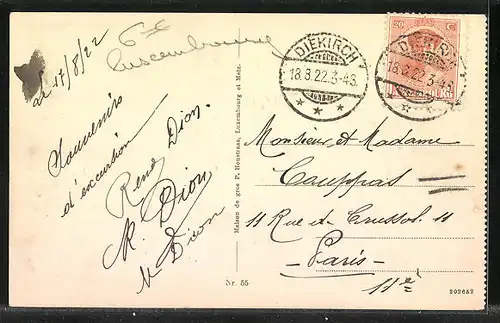 le 17/8/22
Gd
Luxembourg
Souvenirs
d'excursion
René Dion.
R. Dion
M Dion
Maison de gros P. Houstraas, Luxembourg et Metz.
Nr. 55
DIEKIRCH
18.8.22.3-4S.
DIEKIRCH
18.8.22.3-4S.
20 CS
LUXEMBOURG
Monsieur et Madame
Couppas
11 Rue de Crussol. 11
- Paris -
11è
202652